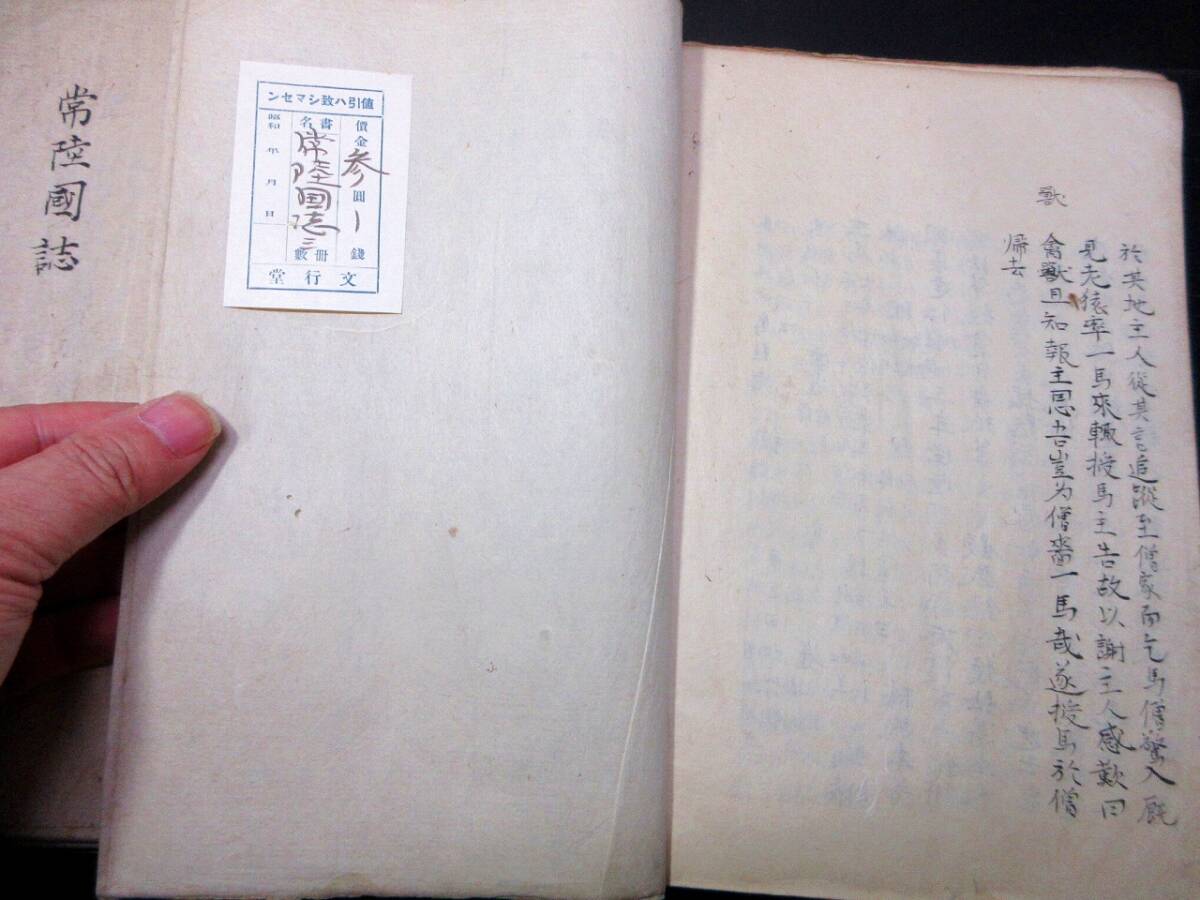 常陸國誌
値引ハ致シマセン
價金参圓ー錢
書名常陸国誌
冊数三
昭和 年 月 日
文行堂
獣
於其地主人從其言追蹤至僧家而乞馬僧驚入厩
見老猿率一馬來輙授馬主告故以謝主人感歎曰
禽獣且知報主恩吾豈为僧嗇一馬哉遂授馬於僧
帰去